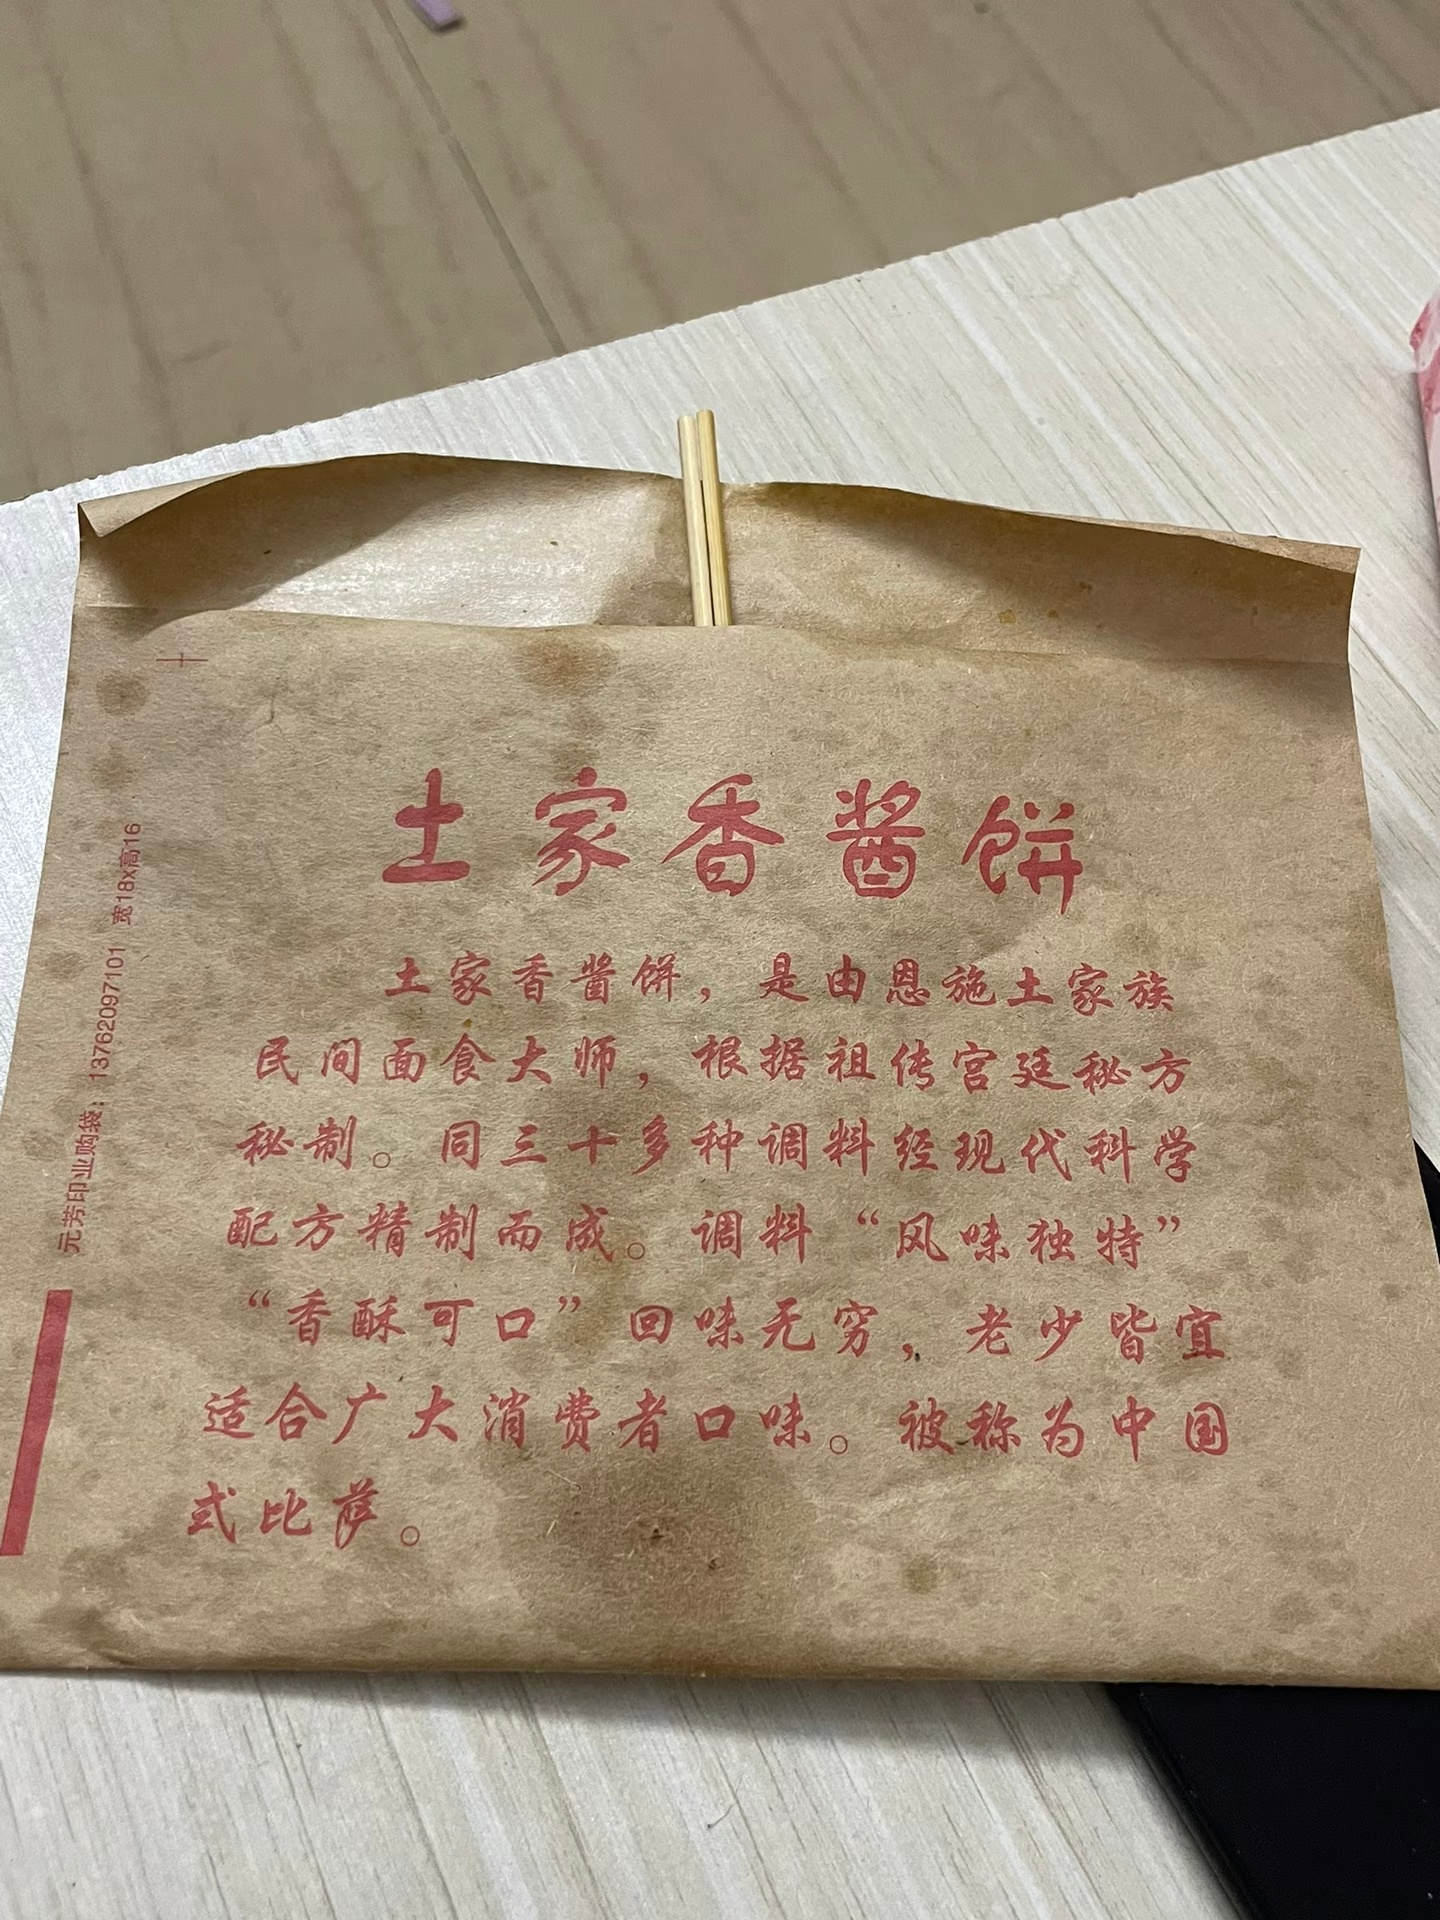 土家香酱饼
土家香酱饼，是由恩施土家族
民间面食大师，根据祖传宫廷秘方
秘制。同三十多种调料经现代科学
配方精制而成。调料“风味独特”
“香酥可口”回味无穷，老少皆宜
适合广大消费者口味。被称为中国
式比萨。
元芳印业购袋：13762097101 宽18x高16